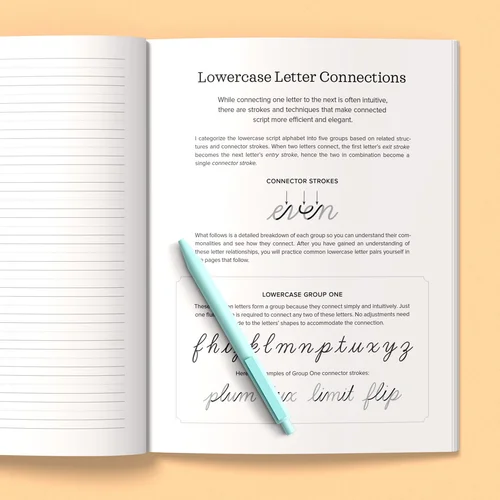 Lowercase Letter Connections
While connecting one letter to the next is often intuitive,
there are strokes and techniques that make connected
script more efficient and elegant.
I categorize the lowercase script alphabet into five groups based on related struc-
tures and connector strokes. When two letters connect, the first letter's exit stroke
becomes the next letter's entry stroke, hence the two in combination become a
single connector stroke.
CONNECTOR STROKES
even
What follows is a detailed breakdown of each group so you can understand their com-
monalities and see how they connect. After you have gained an understanding of
these letter relationships, you will practice common lowercase letter pairs yourself in
pages that follow.
LOWERCASE GROUP ONE
letters form a group because they connect simply and intuitively. Just
one is required to connect any two of these letters. No adjustments need
to the letters' shapes to accommodate the connection.
f h i j k l m n p t u x y z
examples of Group One connector strokes:
plum limit flip